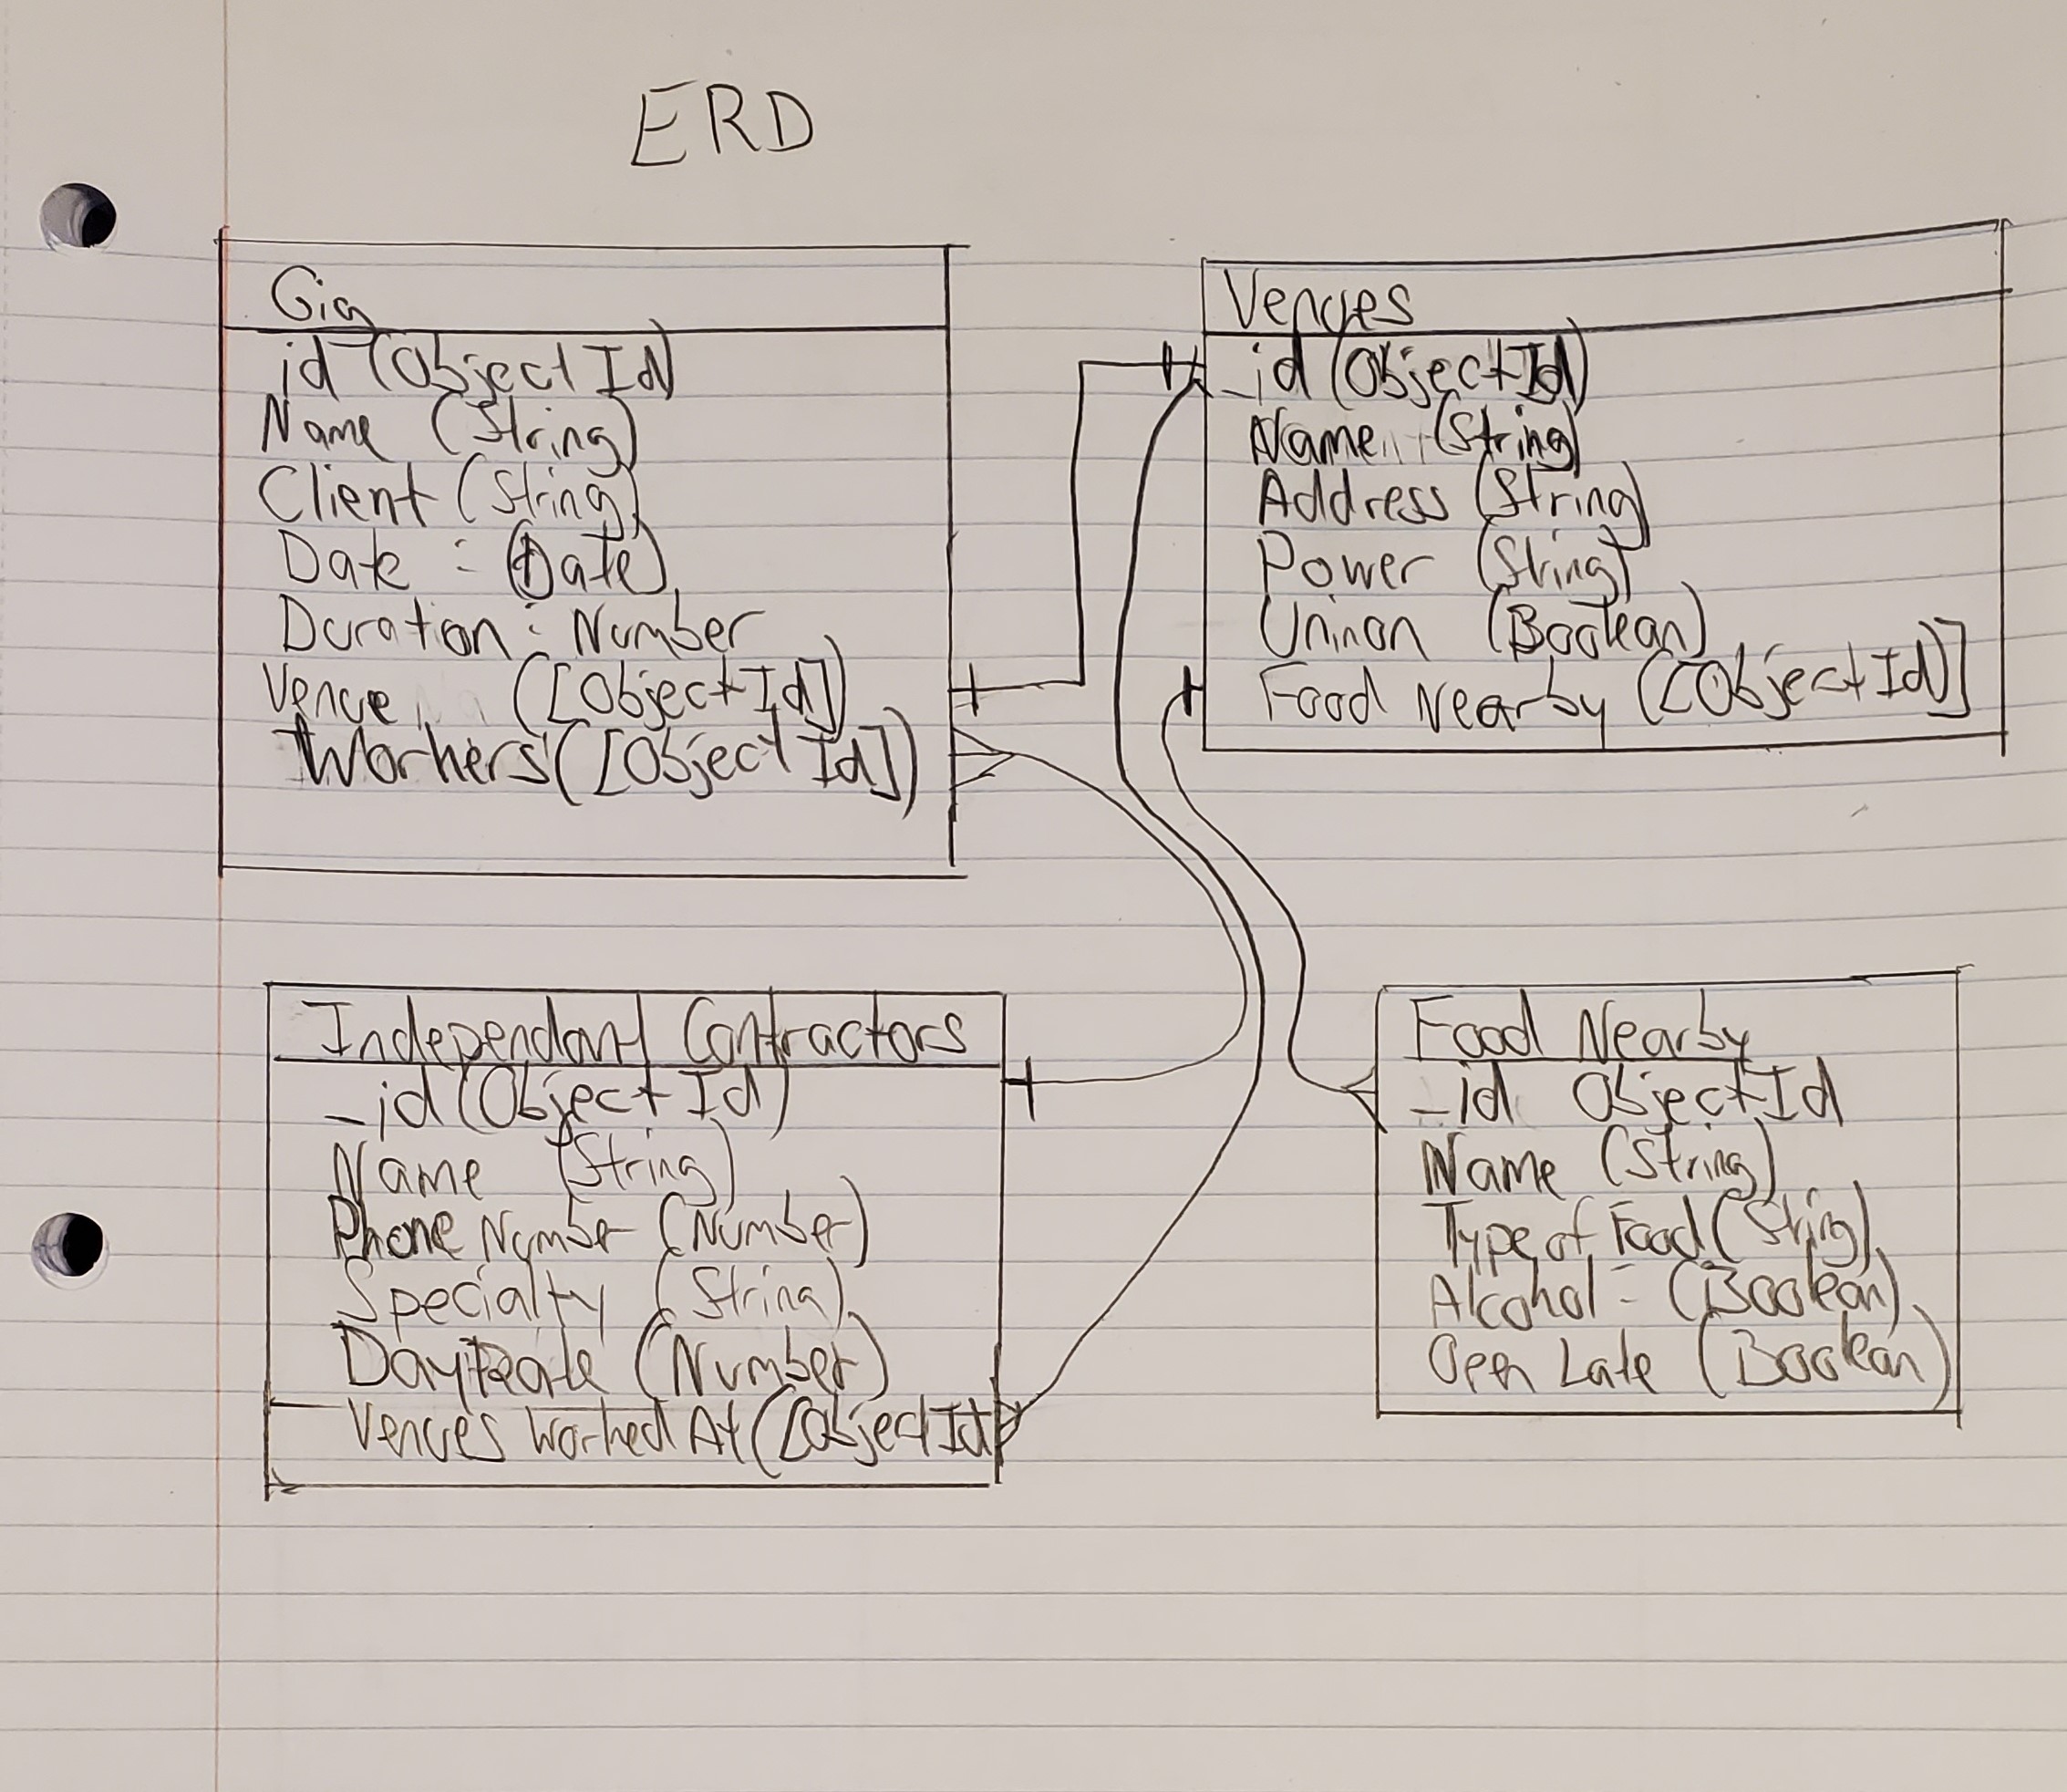 ERD
Gig
_id (Object Id)
Name (String)
Client (String)
Date : (Date)
Duration : Number
Venue ([Object Id])
Workers ([Object Id])
Venues
_id (Object Id)
Name (String)
Address (String)
Power (String)
Uninon (Boolean)
Food Nearby ([Object Id]
Independant Contractors
_id (Object Id)
Name (String)
Phone Number (Number)
Specialty (String)
Day Rate (Number)
Venues Worked At ([Object Id]
Food Nearby
_id Object Id
Name (String)
Type of Food (String)
Alcohol : (Boolean)
Open Late (Boolean)